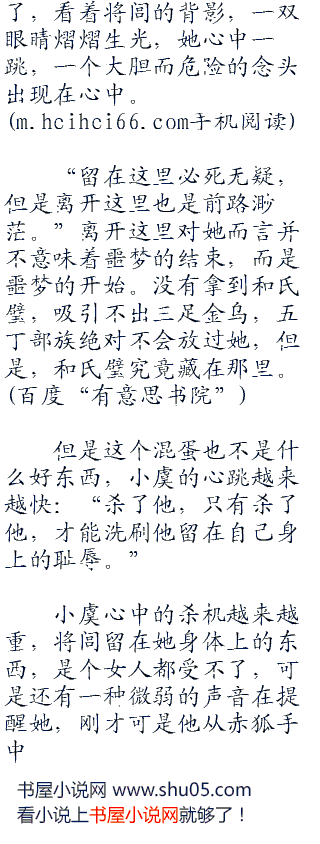 了，看着将闾的背影，一双
眼睛熠熠生光，她心中一
跳，一个大胆而危险的念头
出现在心中。
(m.hcihci66.com手机阅读)
“留在这里必死无疑，
但是离开这里也是前路渺
茫。”离开这里对她而言并
不意味着噩梦的结束，而是
噩梦的开始。没有拿到和氏
璧，吸引不出三足金乌，五
丁部族绝对不会放过她，但
是，和氏璧究竟藏在那里。
(百度“有意思书院”)
但是这个混蛋也不是什
么好东西，小虞的心跳越来
越快：“杀了他，只有杀了
他，才能洗刷他留在自己身
上的耻辱。”
小虞心中的杀机越来越
重，将闾留在她身体上的东
西，是个女人都受不了，可
是还有一种微弱的声音在提
醒她，刚才可是他从赤狐手
中
书屋小说网 www.shu05.com
看小说上书屋小说网就够了！